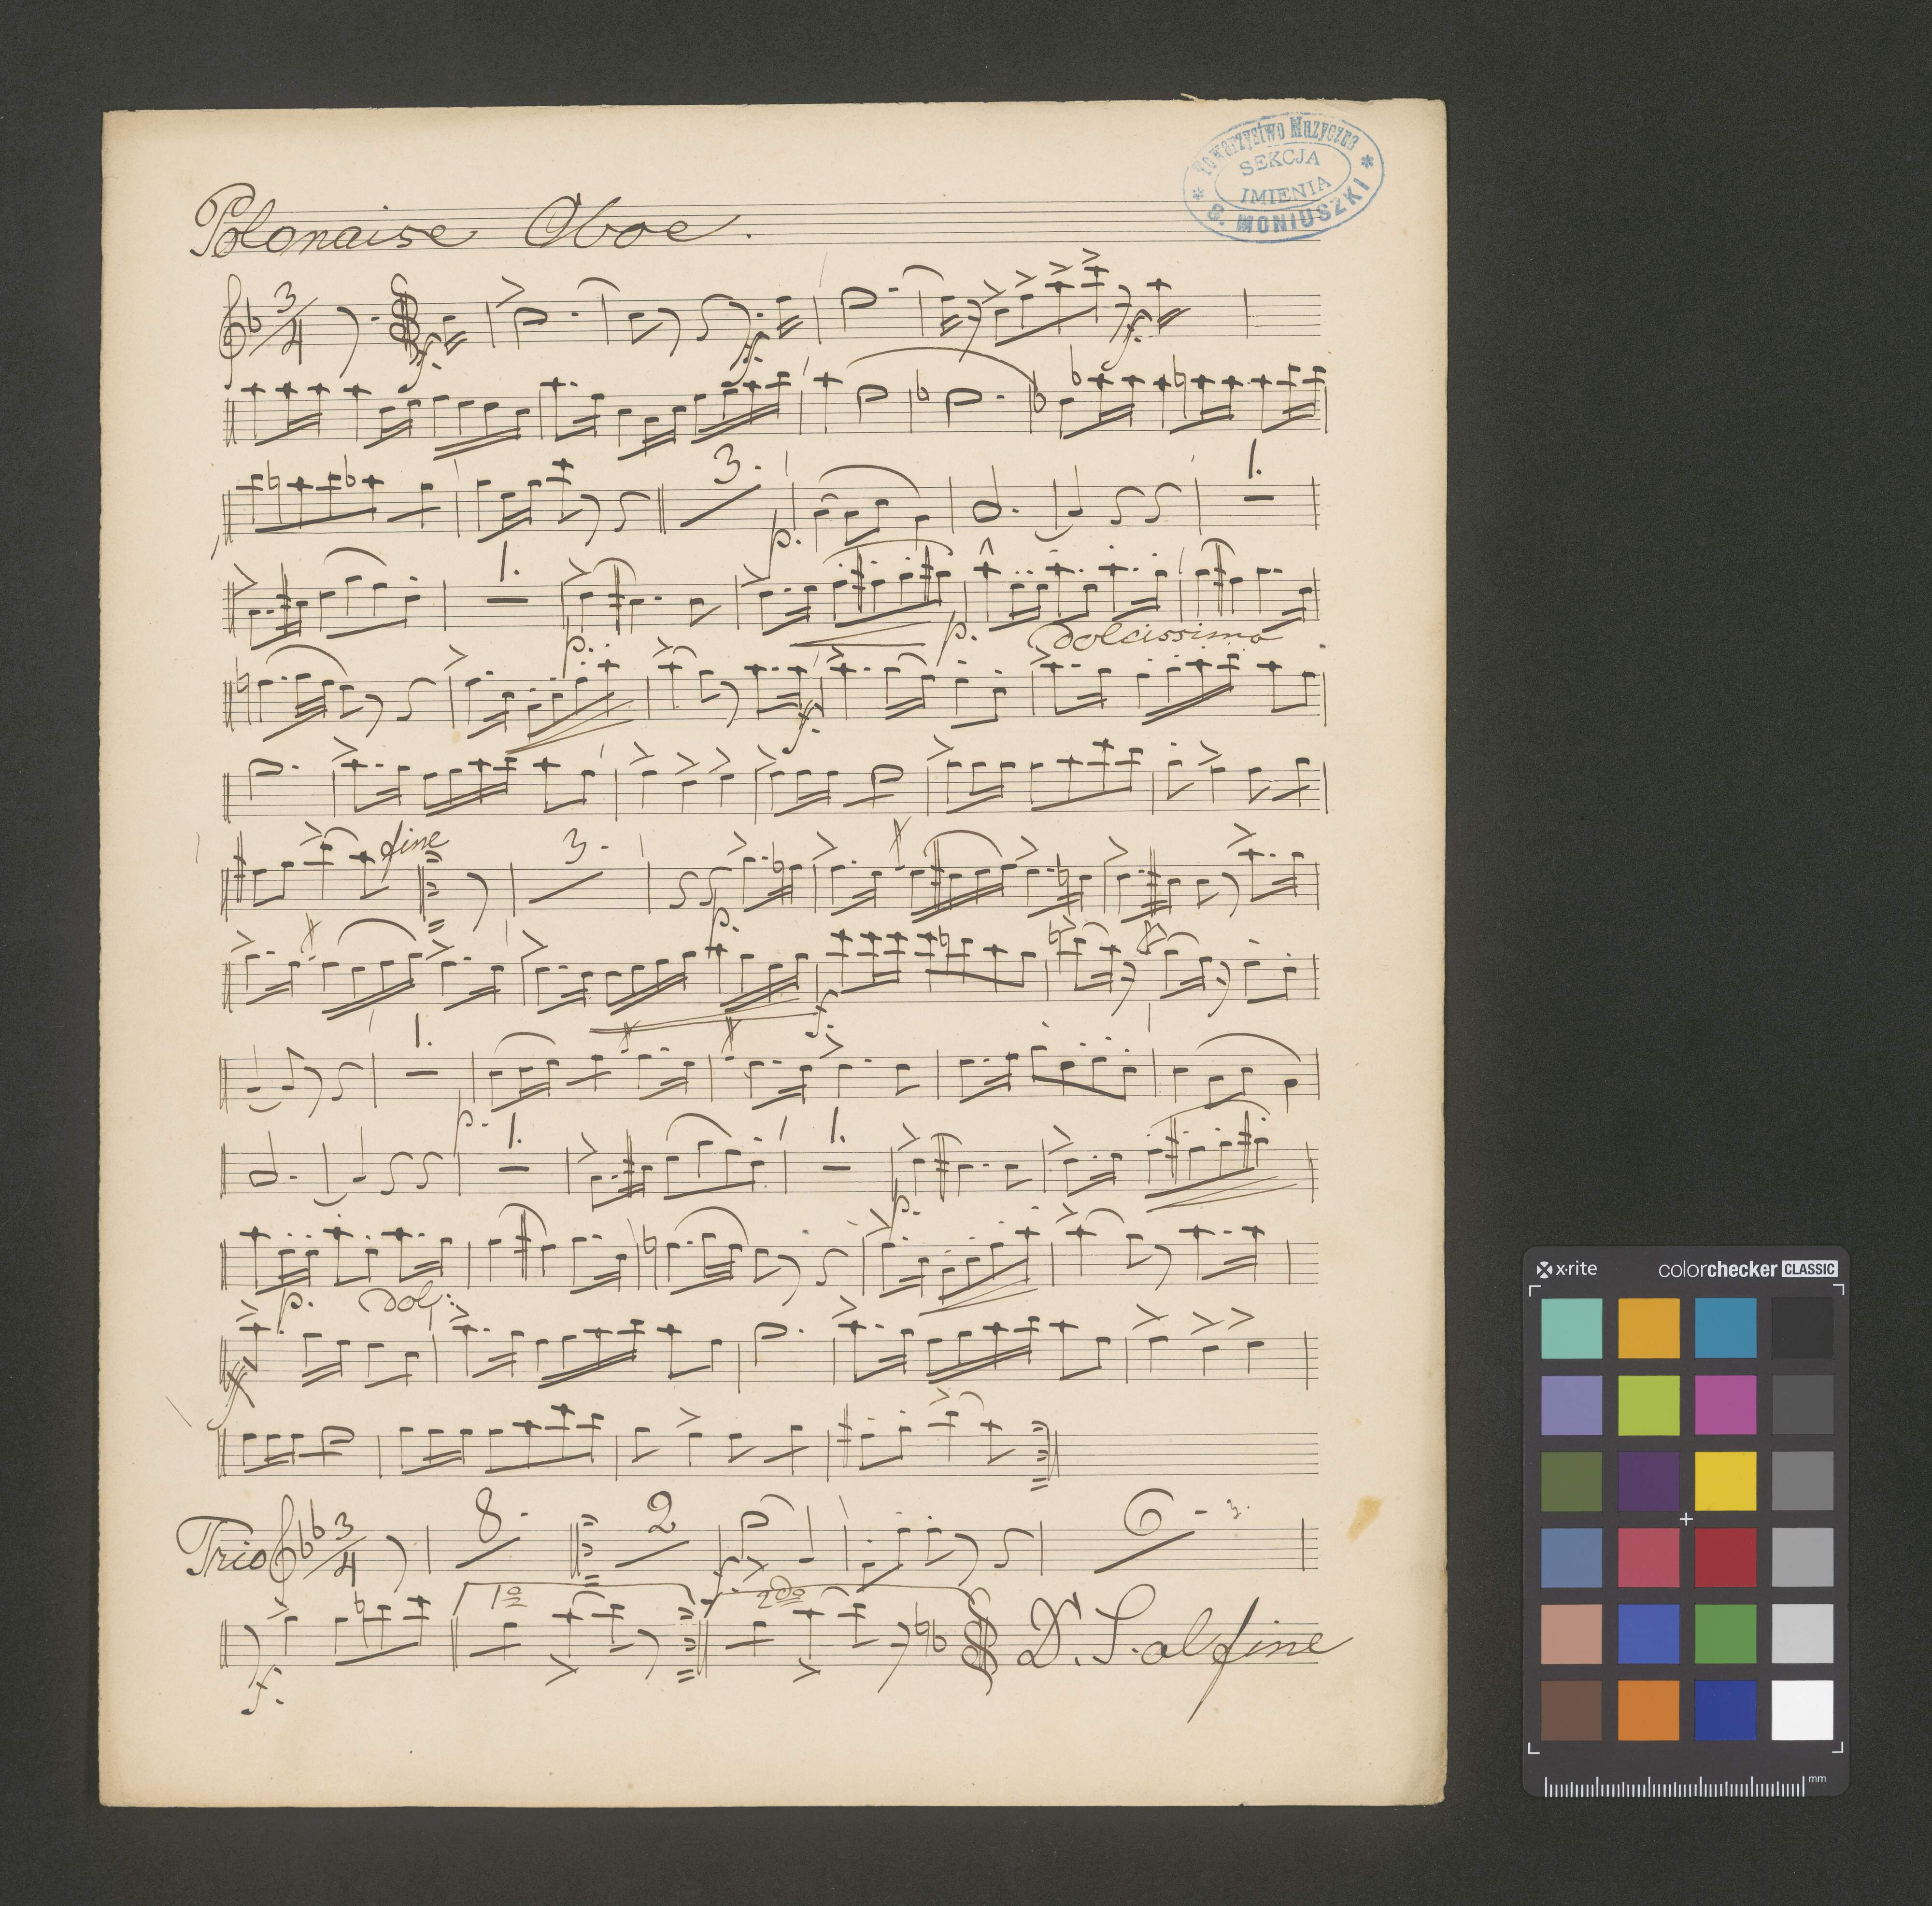 Towarzystwo Muzyczne
SEKCJA
IMIENIA
S. MONIUSZKI
Polonaise Oboe.
3/4
f. f. f.
3. 1.
p.
1.
p. p. dolcissimo
f.
fine 3.
p.
f.
1.
p.
1. 1.
p.
p. dol:
f
Trio 3/4 8. 2 6 3.
f.
1o 2do
f. D. S. al fine
x-rite colorchecker CLASSIC
mm